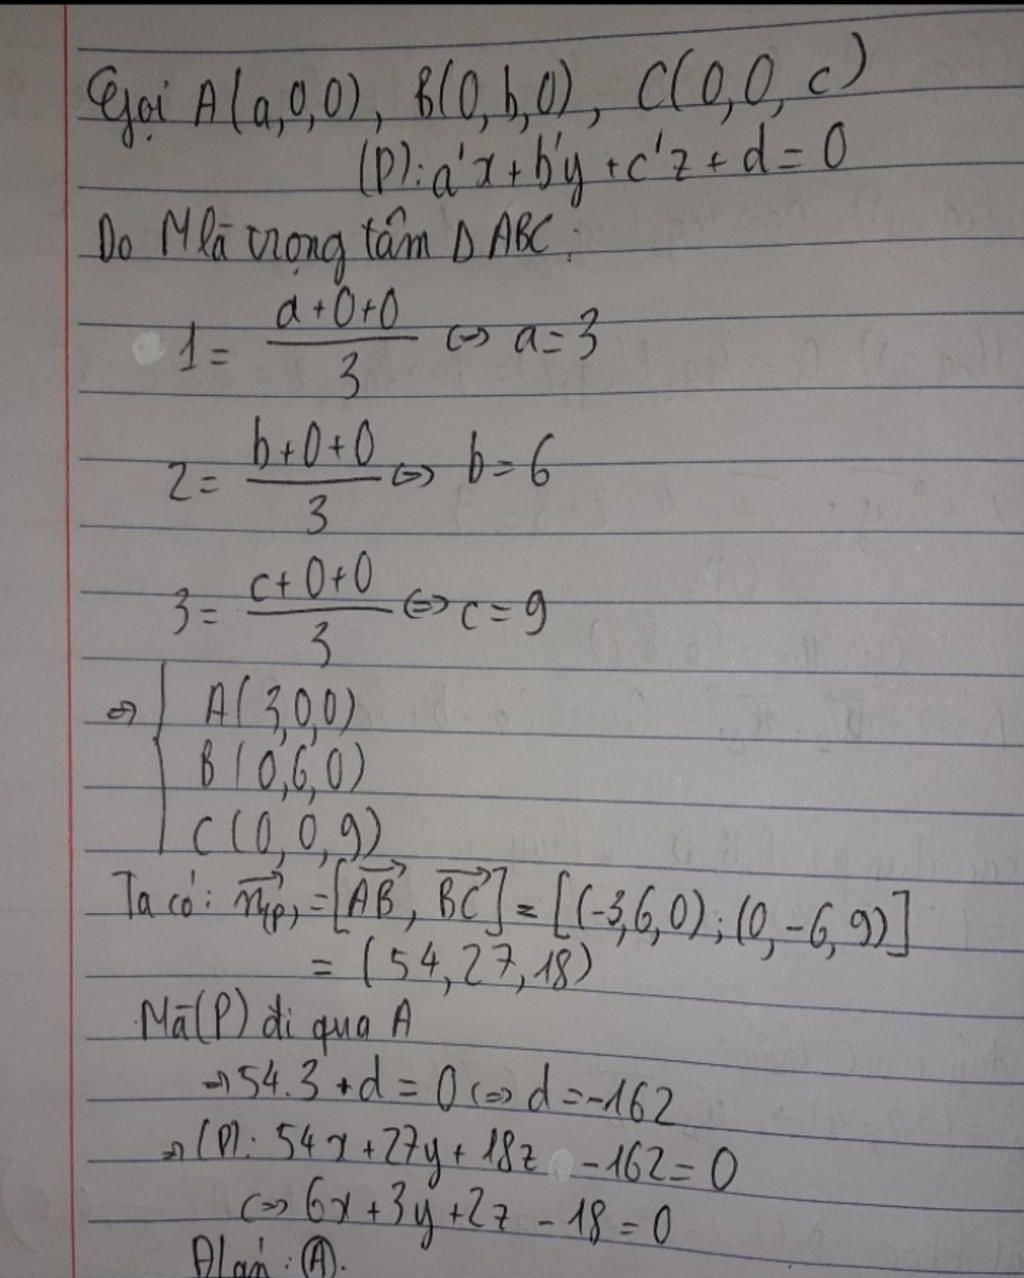 Gọi A(a,0,0), B(0,b,0), C(0,0,c)
(P): a'x + b'y + c'z + d = 0
Do M là trọng tâm Δ ABC:
1 = (a+0+0)/3 ⇔ a = 3
2 = (b+0+0)/3 ⇔ b = 6
3 = (c+0+0)/3 ⇔ c = 9
⇒ { A(3,0,0)
B(0,6,0)
C(0,0,9)
Ta có: n⃗(P) = [AB⃗, BC⃗] = [(-3,6,0);(0,-6,9)]
= (54,27,18)
Mà (P) đi qua A
⇒ 54.3 + d = 0 ⇔ d = -162
⇒ (P): 54x + 27y + 18z - 162 = 0
⇔ 6x + 3y + 2z - 18 = 0
Đ/án: (A).